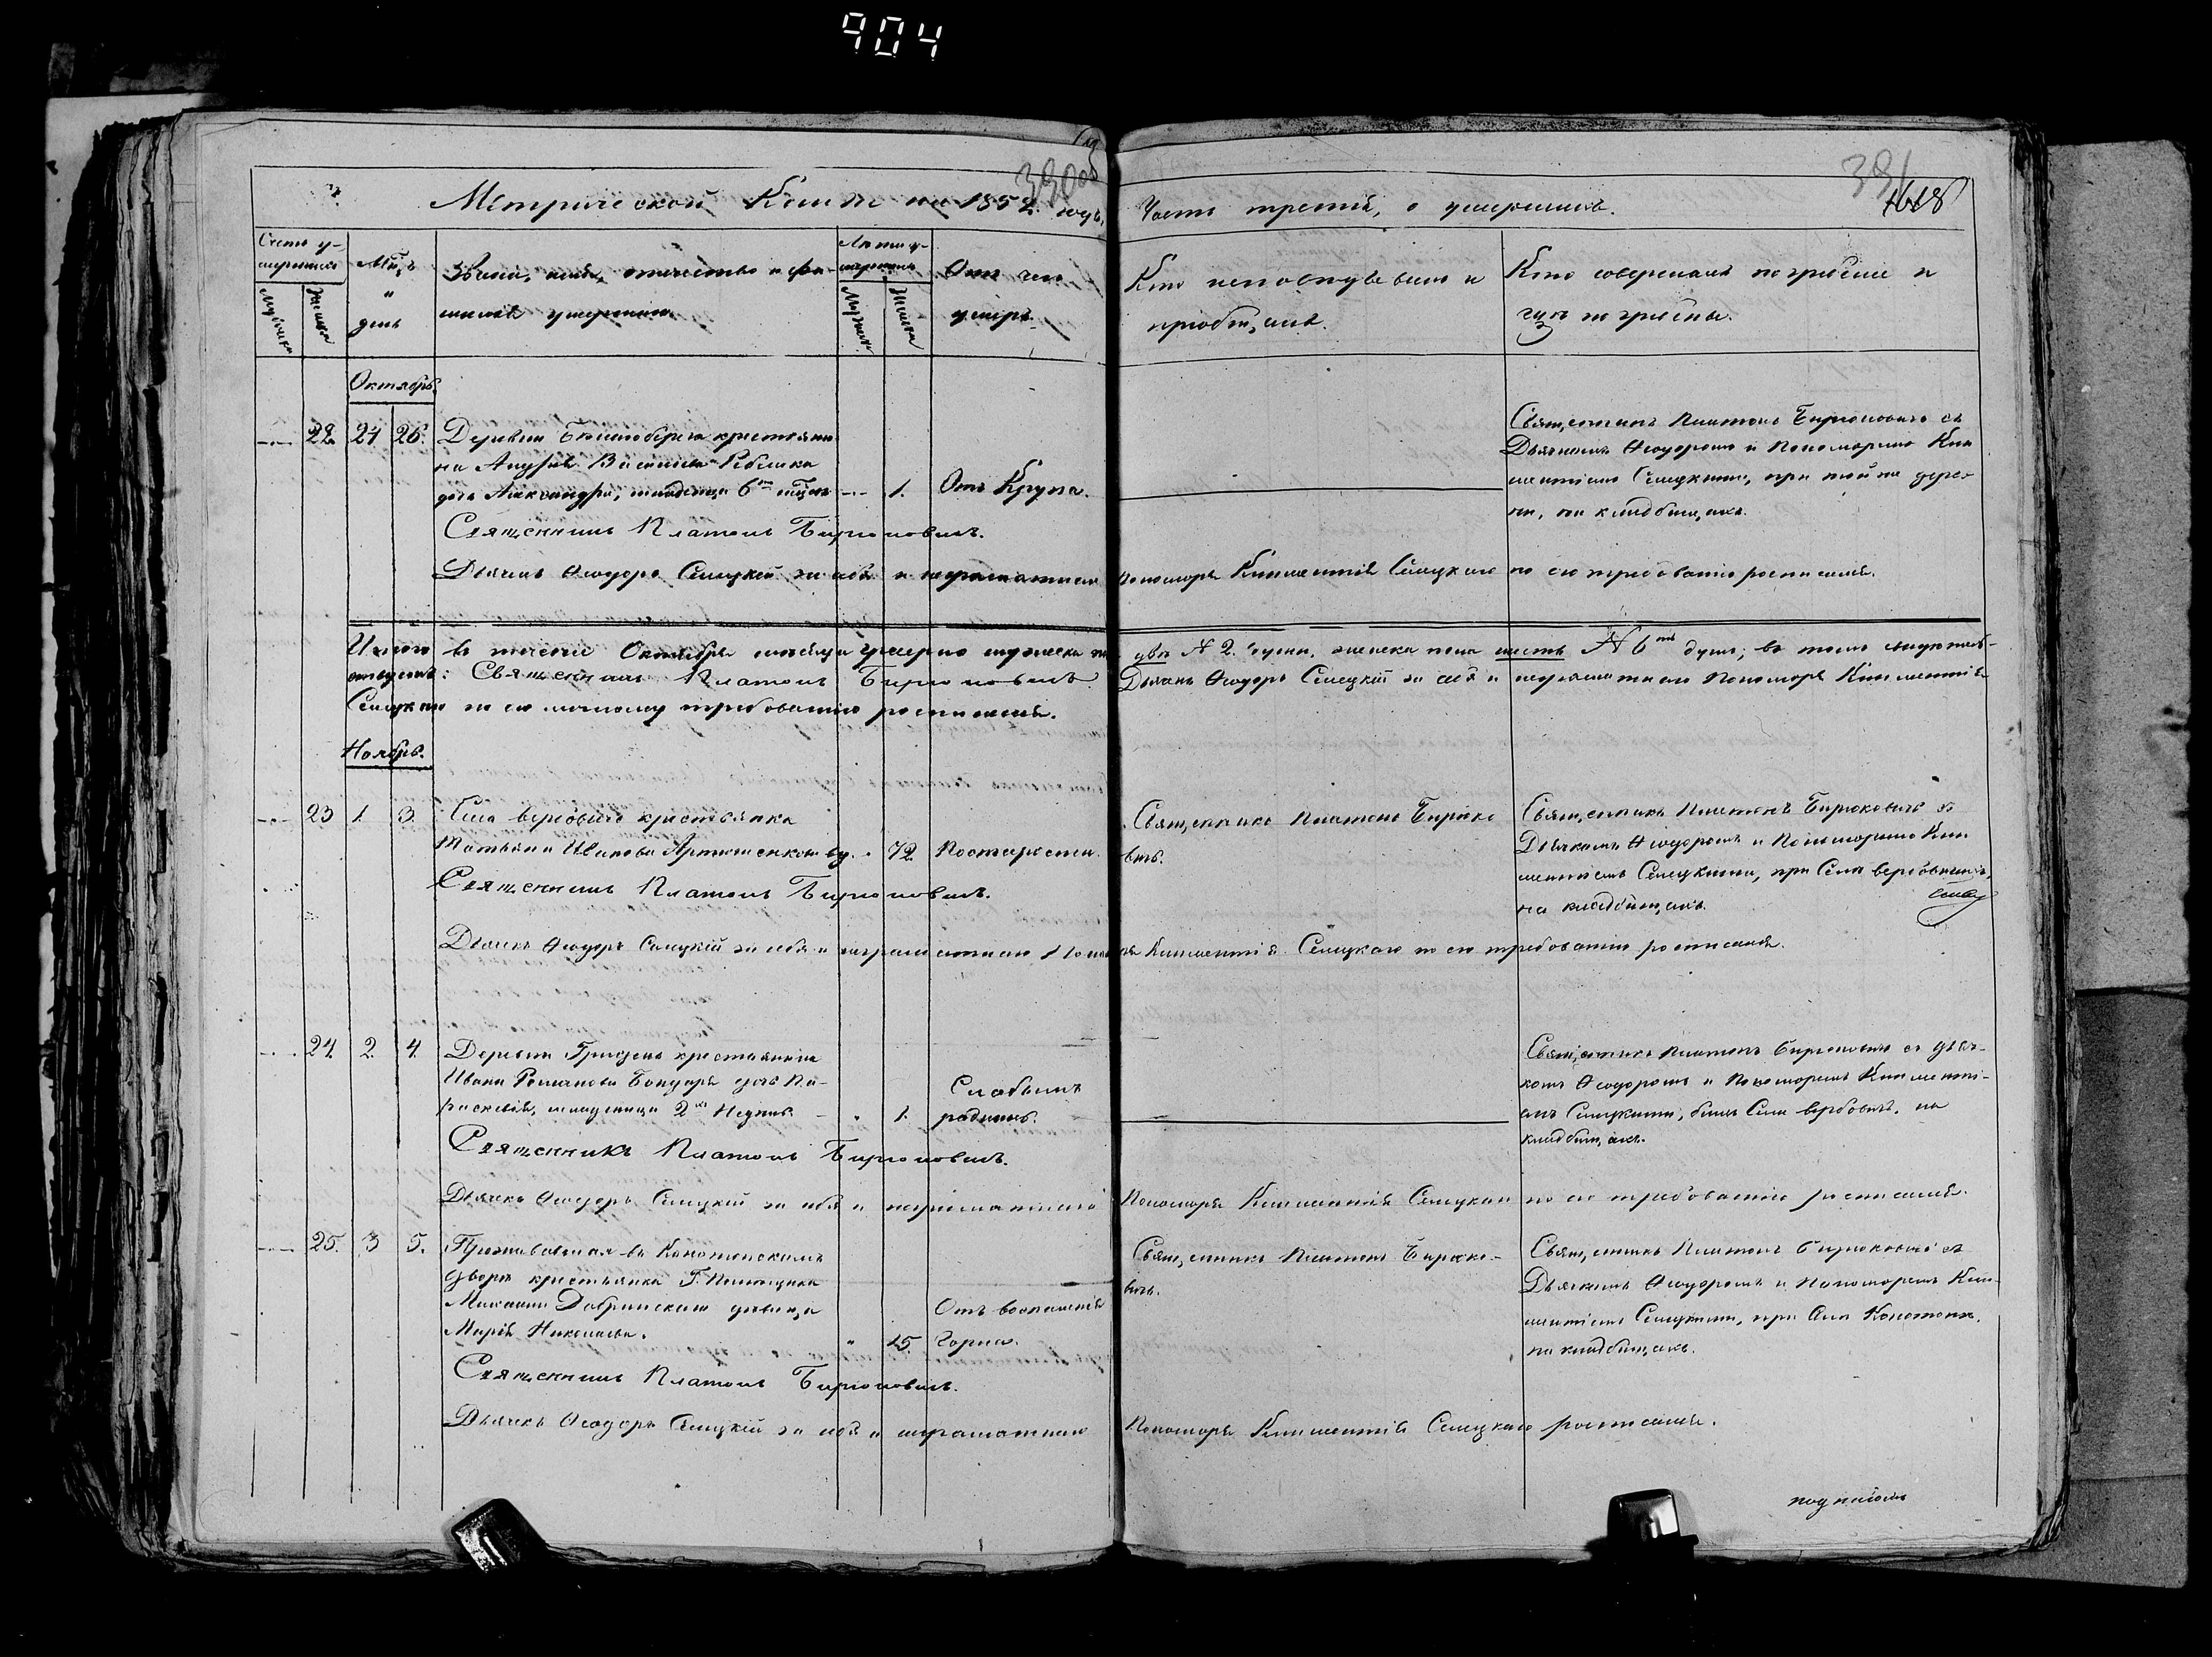 904
390об
391
1618
Метрической Книги на 1852. годъ,
Часть третія, о умершихъ.
Счетъ у-
мершихъ
Мужеска
Женска
Мѣ-ць
и
день
Званіе, имя, отчество и фа-
милія умершихъ
Лета у-
мершихъ
Мужеска
Женска
Отъ чего
умеръ.
Кто исповѣдывалъ и
пріобщалъ.
Кто совершалъ погребеніе и
гдѣ погребены.
Октябрь
22. 24 26.
Деревни крестьяни
на Андрея Васильева
дочь Александра, младенца 6ти мѣсяц 1. Отъ Крупа.
Священникъ Платонъ Бирюковичъ съ
Дьячкомъ Ѳеодоромъ и Пономаремъ Кли
ментіемъ Селецкими, при той же дерев
ни, на кладбищахъ.
Священникъ Платонъ Бирюковичъ.
Дьячекъ Ѳеодоръ Селецкій за себя и неграматнаго Пономаря Климентія Селецкаго по его требованію росписался.
Итого въ теченіи Октября месяца умерло мужеска пола два № 2. души, женска пола шесть № 6ть душъ; въ томъ свидетель-
ствуемъ: Священникъ Платонъ Бирюковичъ Дьячекъ Ѳеодоръ Селецкій за себя и неграматнаго Пономаря Климентія
Селецкаго по его личному требованію росписался.
Ноябрь.
23 1. 3.
Села Вербовичъ крестьянка
Татьяна Иванова Артюшенкова вд. 72. По старости.
Священникъ Платонъ Бирюко
вичъ.
Священникъ Платонъ Бирюковичъ съ
Дьячкомъ Ѳеодоромъ и Пономаремъ Кли
ментіемъ Селецкими, при Селѣ Вербовичахъ,
на кладбищахъ.
Священникъ Платонъ Бирюковичъ.
Дьячекъ Ѳеодоръ Селецкій за себя и неграматнаго Пономаря Климентія Селецкаго по его требованію росписался.
24. 2. 4.
Деревни крестьянина
Ивана Романова Бондаря дочь Па-
раскевія, младенца 2хъ Недель 1.
Слабымъ
родимъ.
Священникъ Платонъ Бирюковичъ съ Дьяч-
комъ Ѳеодоромъ и Пономаремъ Клименті-
емъ Селецкими, близь Села Вербовичъ. на
кладбищахъ.
Священникъ Платонъ Бирюковичъ.
Дьячекъ Ѳеодоръ Селецкій за себя и неграматнаго Пономаря Климентія Селецкаго по его требованію росписался.
25. 3 5.
Проживавшая въ Конотопскомъ
дворѣ крестьянка Г. Помещика
Михаила Добринскаго девица
Марія Николаева. 15.
Отъ воспаленія
Горла.
Священникъ Платонъ Бирюко-
вичъ.
Священникъ Платонъ Бирюковичъ съ
Дьячкомъ Ѳеодоромъ и Пономаремъ Кли-
ментіемъ Селецкими, при Селѣ Конотопѣ.
на кладбищахъ.
Священникъ Платонъ Бирюковичъ.
Дьячекъ Ѳеодоръ Селецкій за себя и неграматнаго Пономаря Климентія Селецкаго росписался.